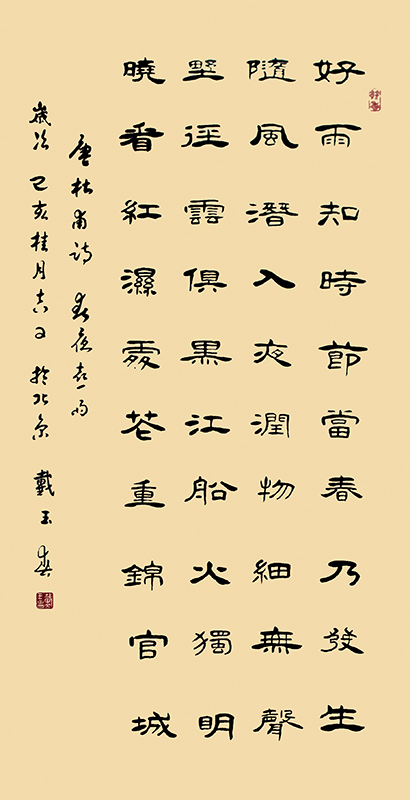 好雨知時節當春乃發生
隨風潛入夜潤物細無聲
野徑雲俱黑江船火獨明
曉看紅濕處花重錦官城
唐杜甫詩 春夜喜雨
歲次己亥桂月吉日於北京 戴玉春